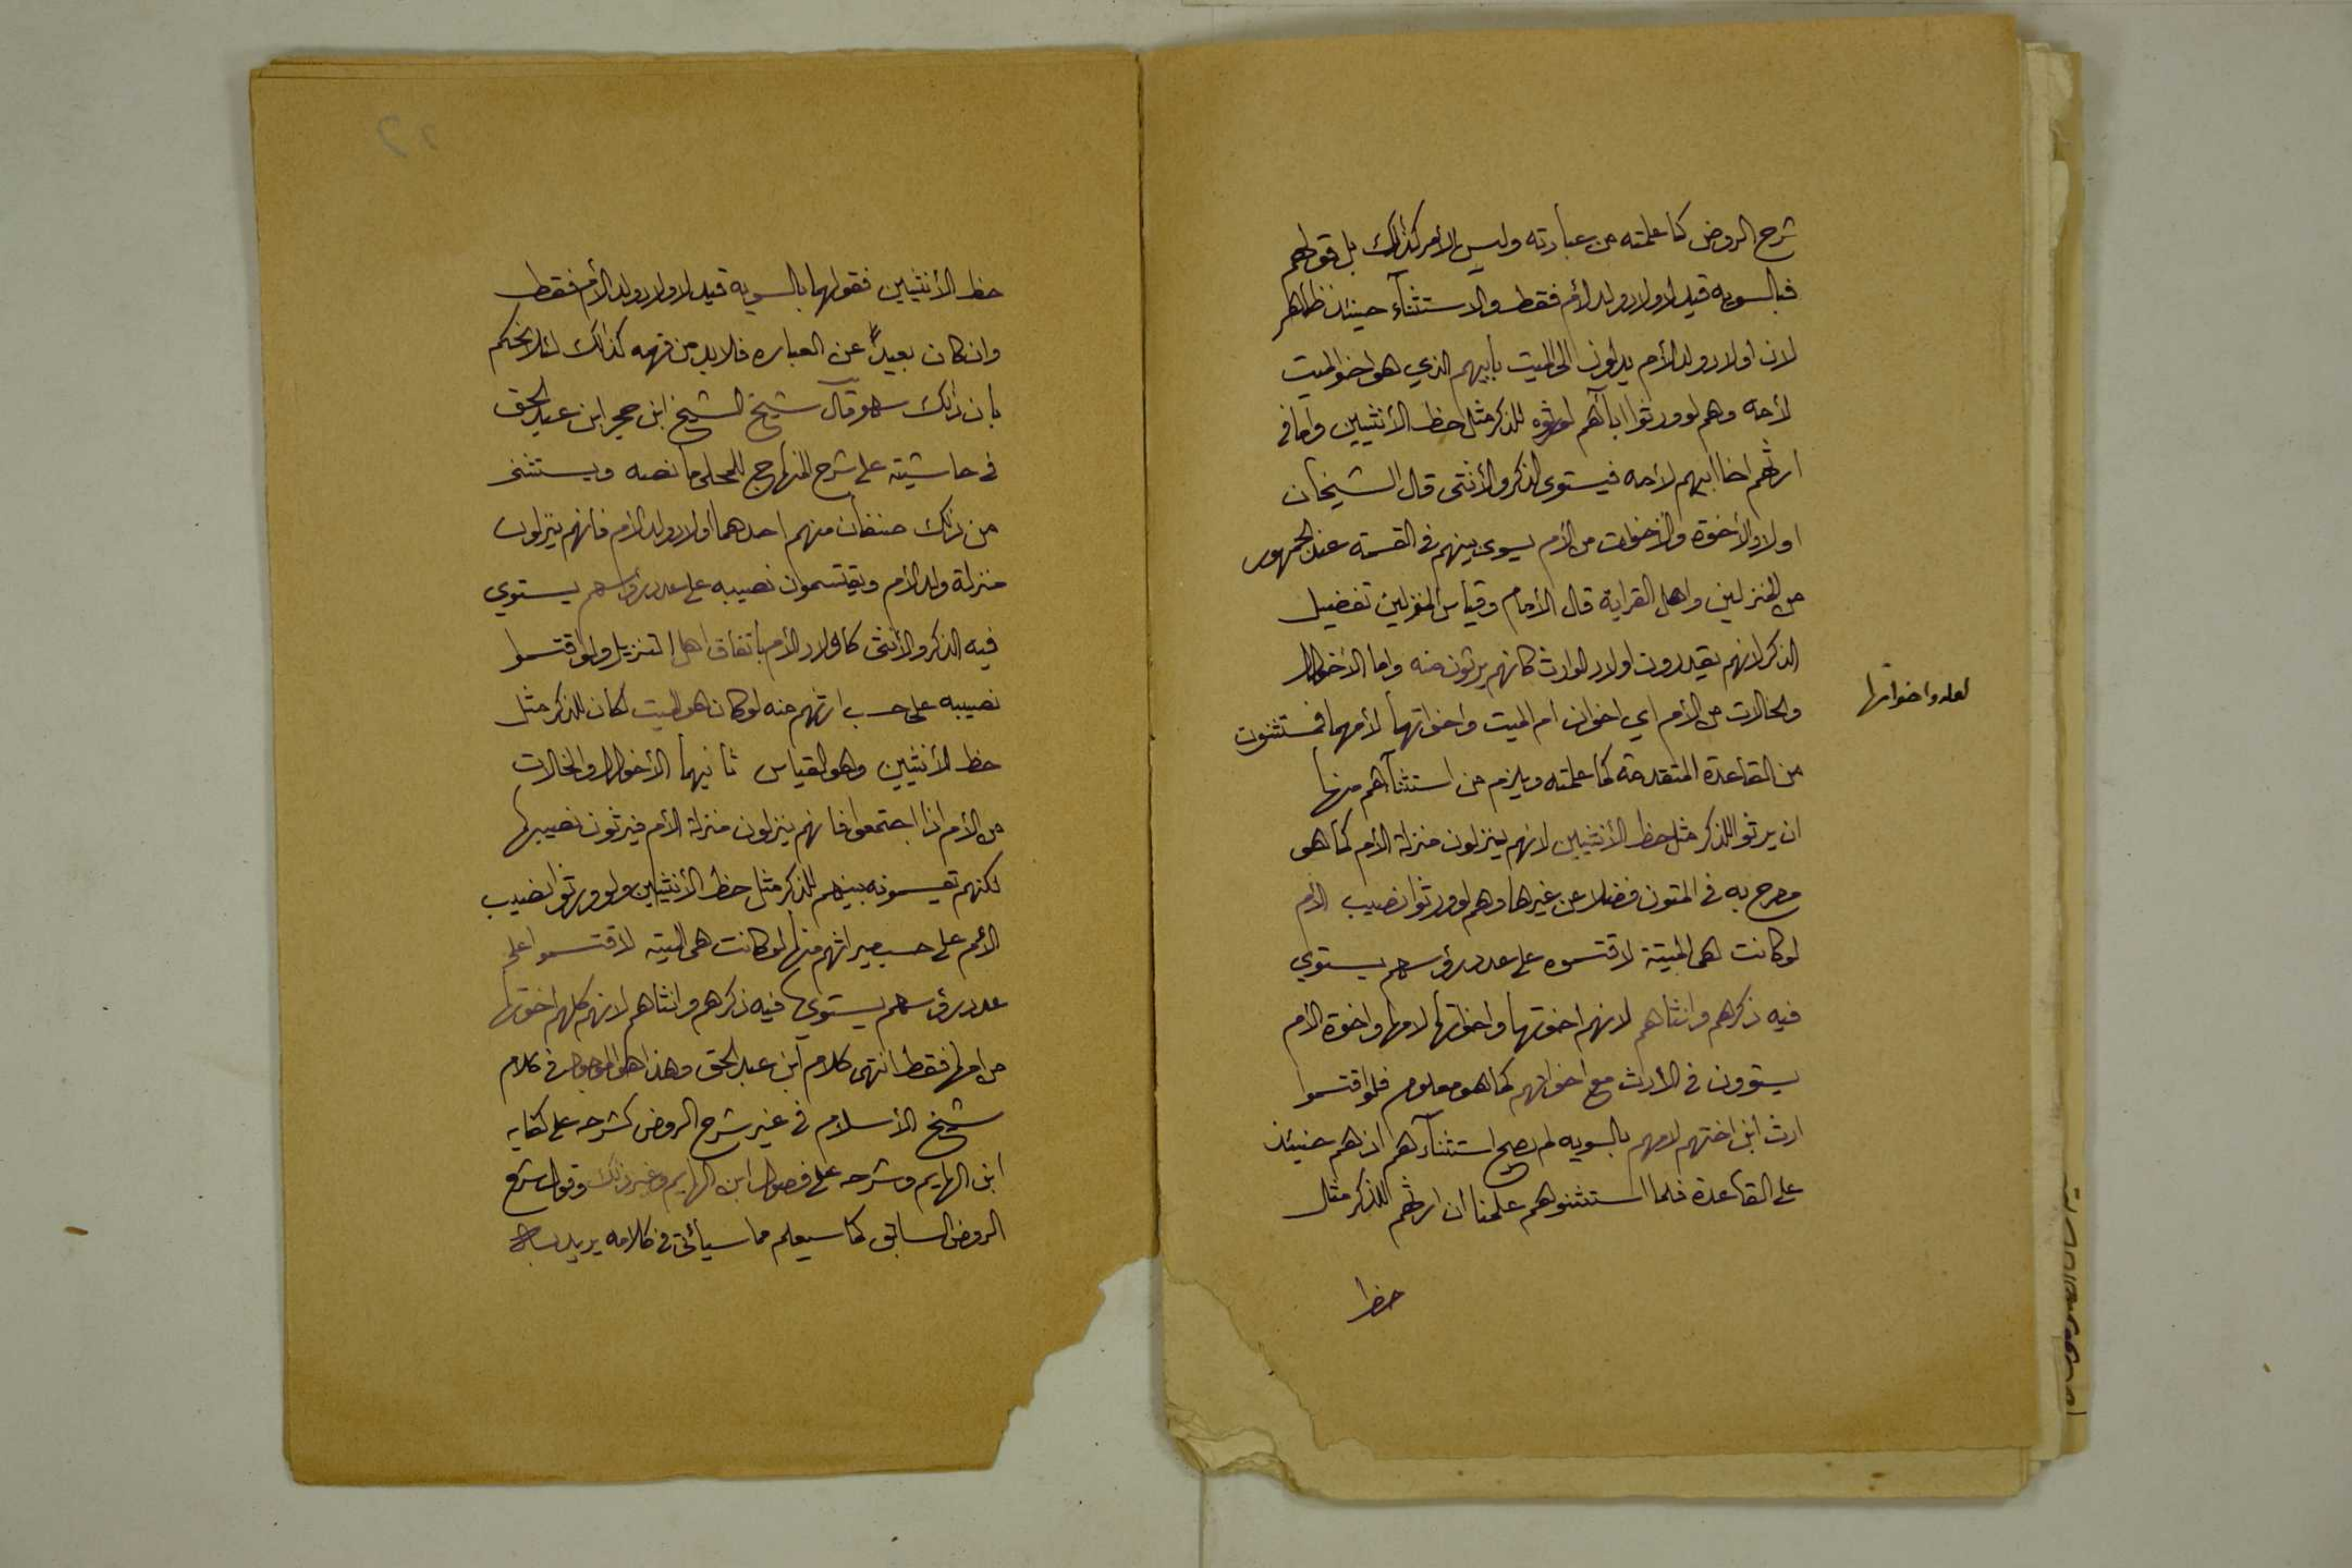 شرح الروض كما علمته من عبارته وليس الأمر كذلك بل قولهم
فبالسويه قيد لاولاد ولد الأم فقط والاستثنآء حينئذ ظاهر
لان اولاد ولد الأم يدلون الى الميت بأبيهم الذي هو اخو الميت
لأمه وهم لو ورثوا اباآهم لورثوه للذكر مثل حظ الأنثيين واما في
ارثهم اخا ابيهم لأمه فيستوى الذكر والأنثى قال الشيخان
اولاد الأخوة والأخوات من الأم يسوى بينهم في القسمة عند الجمهور
من المنزلين واهل القرابة قال الأمام وقياس المنزلين تفضيل
الذكر لانهم يقدرون اولاد الوارث كانهم يرثون منه واما الأخوال
والخالات من الأم اي اخوان ام الميت واخواتهما لأمهما فمستثنون
لعله واخواتها
من القاعدة المتقدمة كما علمته ويلزم من استثنآهم منها
ان يرثوا للذكر مثل حظ الأنثيين لانهم ينزلون منزلة الأم كما هو
مصرح به في المتون فضلا عن غيرها وهم لو ورثوا نصيب الأم
لو كانت هى الميتة لاقتسموه على عدد رؤسهم يستوي
فيه ذكرهم وانثاهم لانهم اخوتها واخواتها لامها واخوة الأم
يستوون في الأرث مع اخواتهم كما هو معلوم فلو اقتسموا
ارث ابن اختهم لامهم بالسويه لم يصح استثنآءهم اذ هم حينئذ
على القاعدة فلما استثنوهم علمنا ان ارثهم للذكر مثل
حظ
حظ الأنثيين فقولهما بالسويه قيد لاولاد ولد الأم فقط
وان كان بعيداً عن العباره فلا بد من فهمه كذالك لئلا يحكم
بان ذلك سهو قال شيخ الشيخ ابن حجر ابن عبد الحق
في حاشيته على شرح المنهاج للمحلى ما نصه ويستثنى
من ذلك صنفان منهم احدهما اولاد ولد الأم فانهم ينزلون
منزلة ولد الأم ويقتسمون نصيبه على عدد رؤسهم يستوي
فيه الذكر والأنثى كاولاد الأم باتفاق اهل التنزيل ولو اقتسموا
نصيبه على حسب ارثهم منه لو كان هو الميت لكان للذكر مثل
حظ الأنثيين وهو القياس ثانيهما الأخوال والخالات
من الأم اذا اجتمعوا فانهم ينزلون منزلة الأم فيرثون نصيبها
لكنهم تقيسمونه بينهم للذكر مثل حظ الأنثيين ولو ورثوا نصيب
الأم على حسب ميراثهم منها لو كانت هى الميته لاقتسموا على
عدد رؤسهم يستوي فيه ذكرهم وانثاهم لانهم كلهم اخوتها
من امها فقط انتهى كلام ابن عبد الحق وهذا هو الموجود في كلام
شيخ الأسلام في غير شرح الروض كشرحه على كفايه
ابن الهايم وشرحه على فصول ابن الهايم وغير ذلك وقول شرح
الروض السابق كما سيعلم مما سيأتى في كلامه يريد